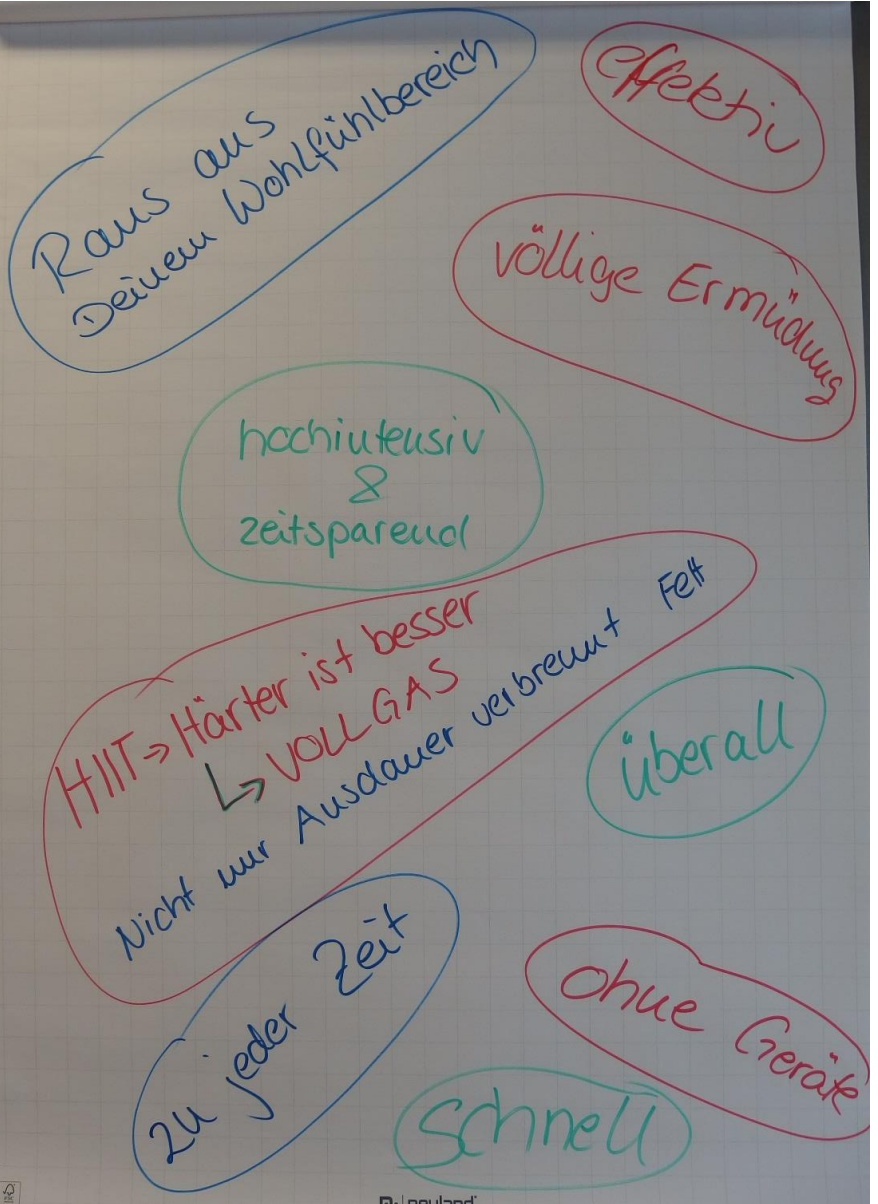 Raus aus
Deinem Wohlfühlbereich
effektiv
völlige Ermüdung
hochintensiv
&
zeitsparend
HIIT → Härter ist besser
↳ VOLLGAS
Nicht nur Ausdauer verbrennt Fett
überall
zu jeder Zeit
ohne Geräte
schnell